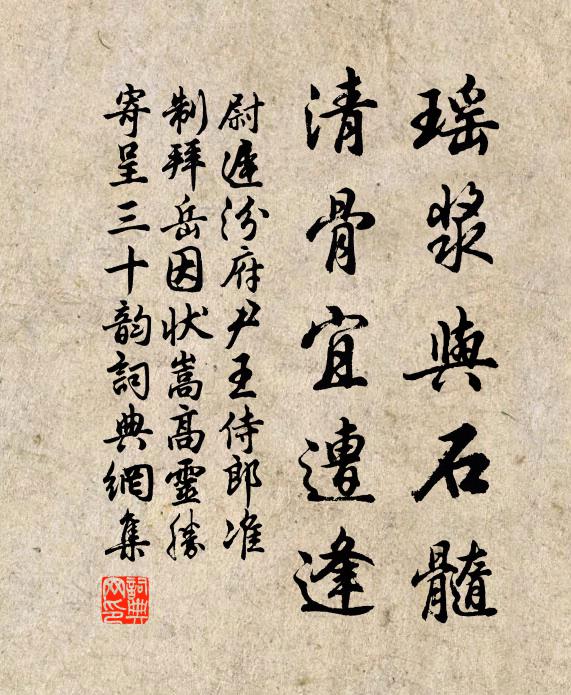 瑶漿與石髓
清骨宜遭逢
尉遲汾府尹王侍郎准
制拜岳因狀嵩高靈勝
寄呈三十韵詞典網集
詞典网印